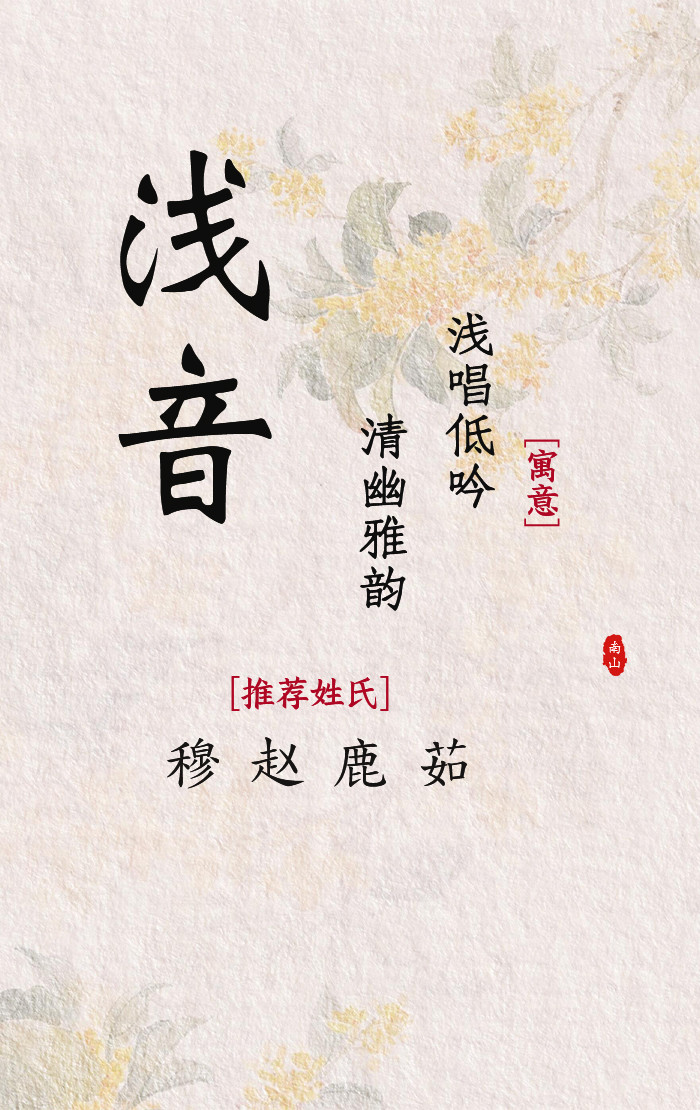 浅音
[寓意]
浅唱低吟
清幽雅韵
南山
[推荐姓氏]
穆 赵 鹿 茹